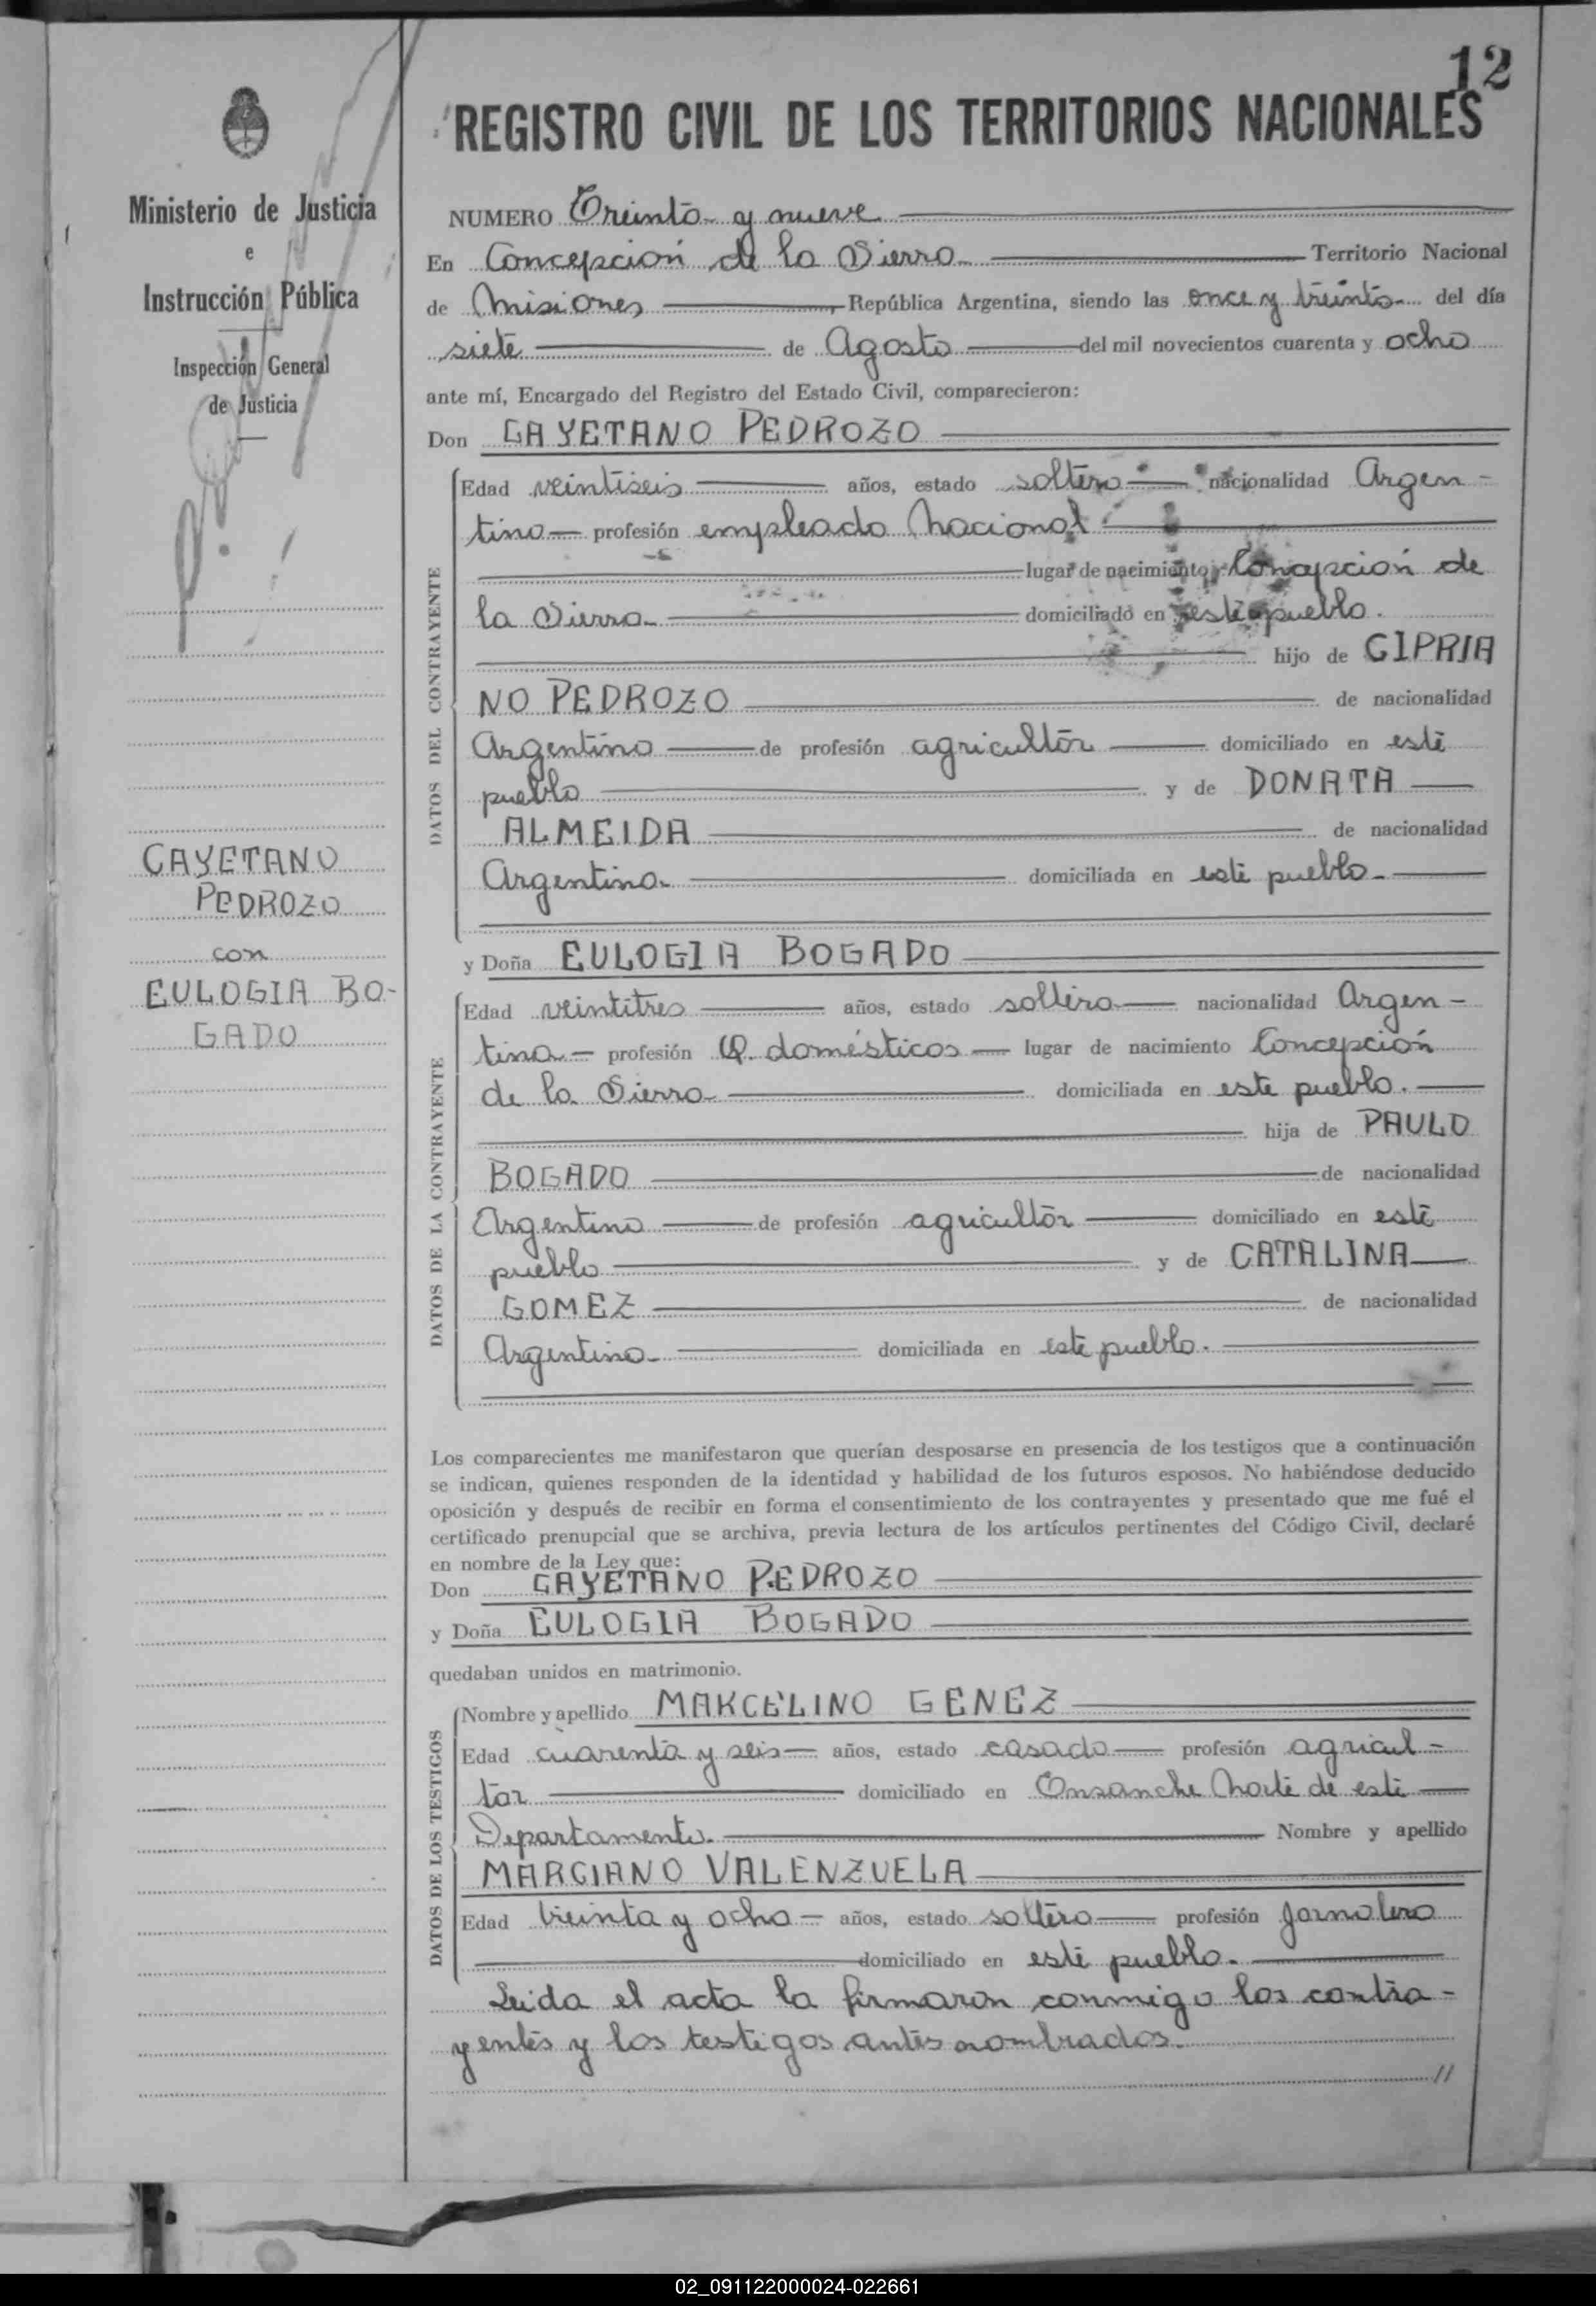 12
REGISTRO CIVIL DE LOS TERRITORIOS NACIONALES
Ministerio de Justicia
e
Instrucción Pública
Inspección General
de Justicia
CAYETANO
PEDROZO
con
EULOGIA BO-
GADO
NUMERO Treinta y nueve
En Concepción de la Sierra Territorio Nacional
de Misiones, República Argentina, siendo las once y treinta del día
siete de Agosto del mil novecientos cuarenta y ocho
ante mí, Encargado del Registro del Estado Civil, comparecieron:
Don CAYETANO PEDROZO
DATOS DEL CONTRAYENTE
Edad veintiseis años, estado soltero nacionalidad Argen-
tino profesión empleado Nacional
lugar de nacimiento Concepción de
la Sierra domiciliado en este pueblo.
hijo de CIPRIA
NO PEDROZO de nacionalidad
Argentino de profesión agricultor domiciliado en este
pueblo y de DONATA
ALMEIDA de nacionalidad
Argentina domiciliada en este pueblo
y Doña EULOGIA BOGADO
DATOS DE LA CONTRAYENTE
Edad veintitres años, estado soltera nacionalidad Argen-
tina profesión Q. domésticos lugar de nacimiento Concepción
de la Sierra domiciliada en este pueblo.
hija de PAULO
BOGADO de nacionalidad
Argentino de profesión agricultor domiciliado en este
pueblo y de CATALINA
GOMEZ de nacionalidad
Argentina domiciliada en este pueblo.
Los comparecientes me manifestaron que querían desposarse en presencia de los testigos que a continuación
se indican, quienes responden de la identidad y habilidad de los futuros esposos. No habiéndose deducido
oposición y después de recibir en forma el consentimiento de los contrayentes y presentado que me fué el
certificado prenupcial que se archiva, previa lectura de los artículos pertinentes del Código Civil, declaré
en nombre de la Ley que:
Don CAYETANO PEDROZO
y Doña EULOGIA BOGADO
quedaban unidos en matrimonio.
DATOS DE LOS TESTIGOS
Nombre y apellido MARCELINO GENEZ
Edad cuarenta y seis años, estado casado profesión agricul-
tor domiciliado en Ensanche Norte de este
Departamento. Nombre y apellido
MARCIANO VALENZUELA
Edad treinta y ocho años, estado soltero profesión Jornalero
domiciliado en este pueblo.
Leida el acta la firmaron conmigo los contra-
yentes y los testigos antes nombrados.
//
02_091122000024-022661